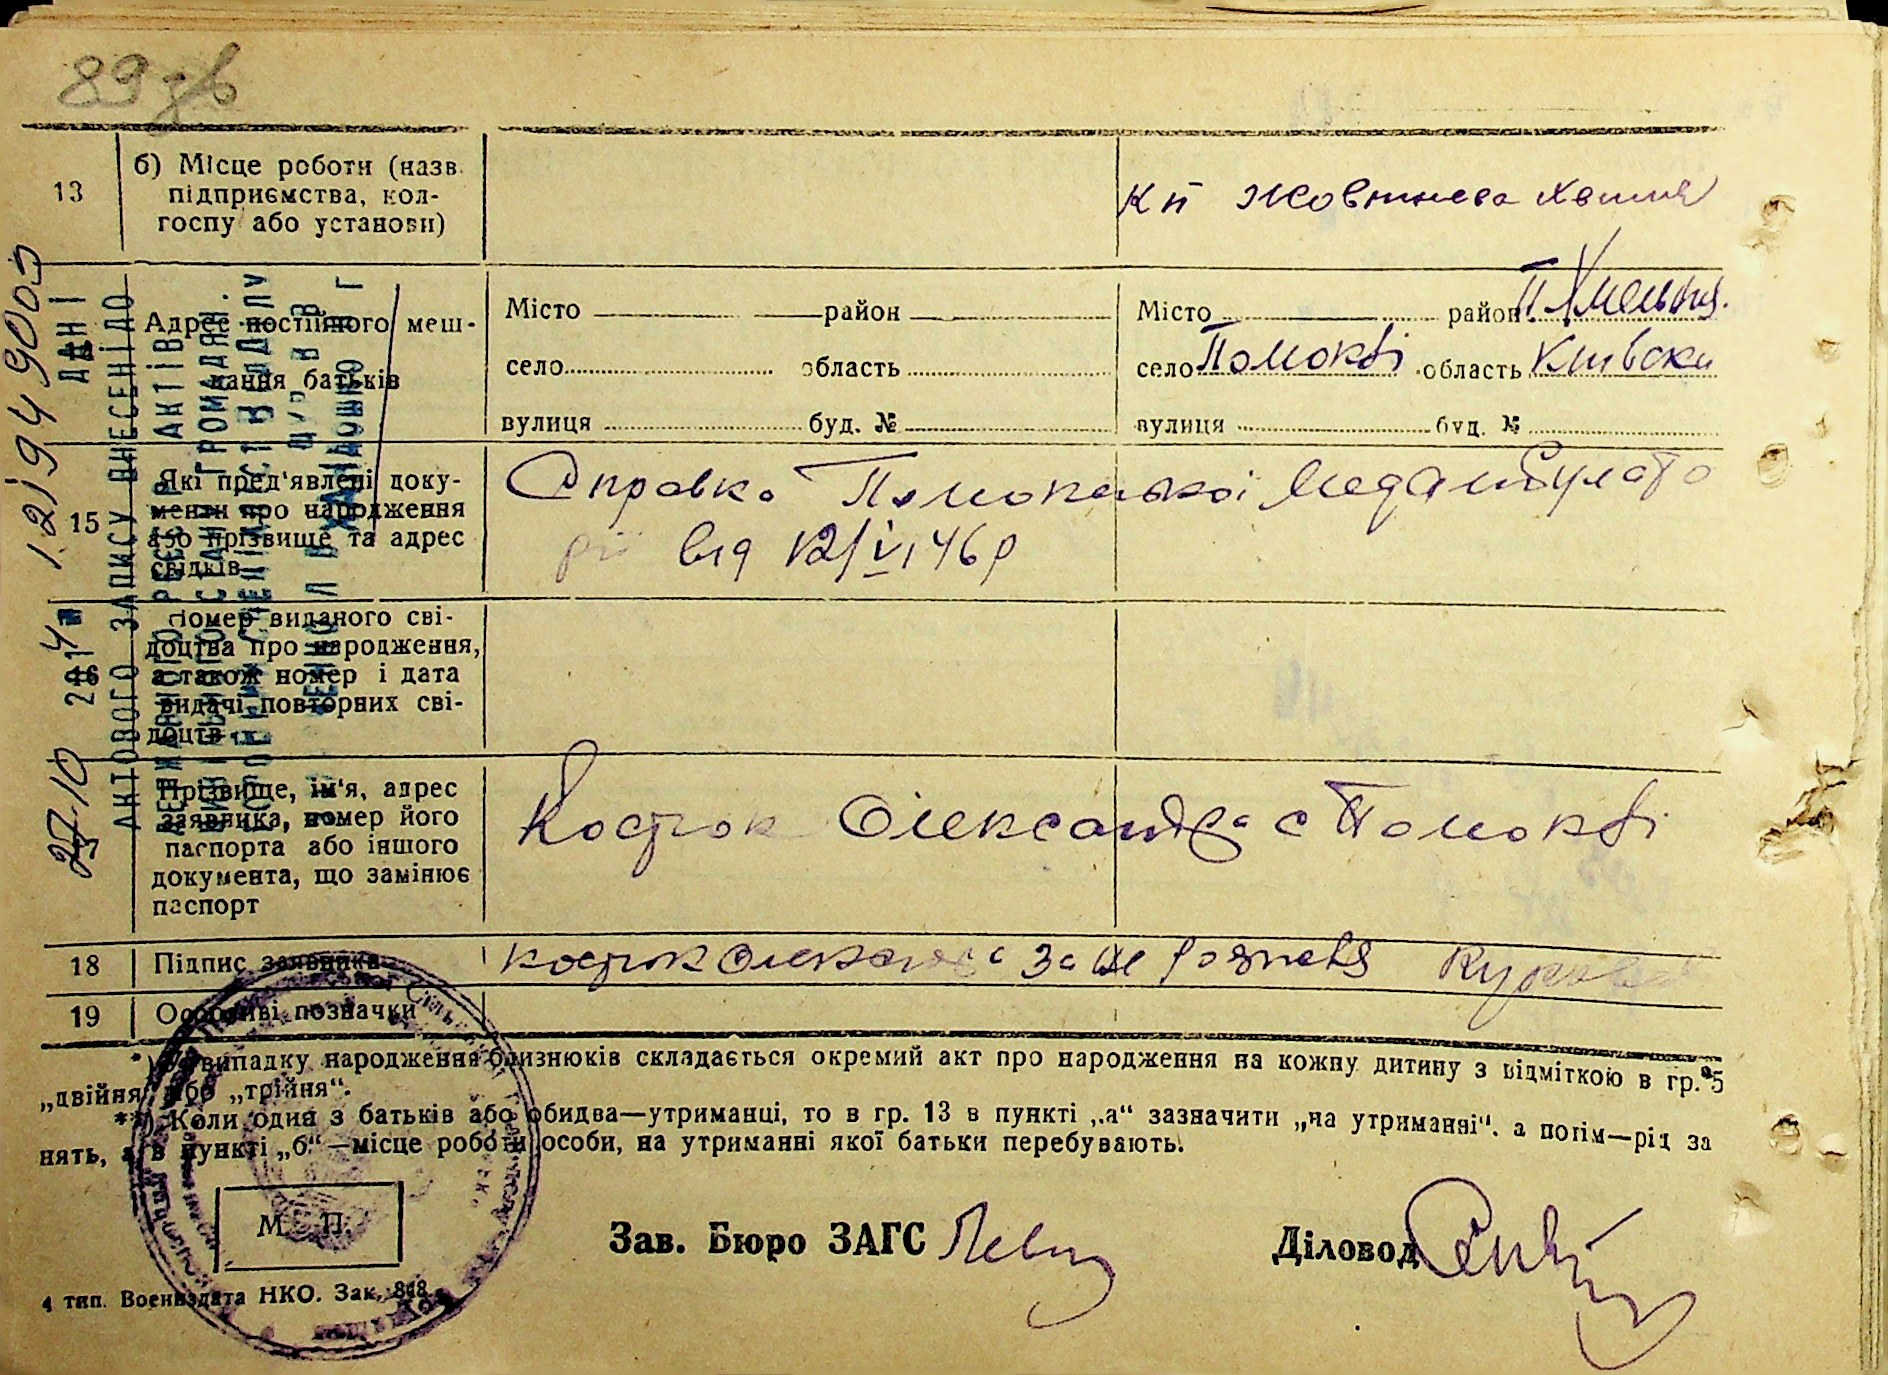 89 зв
13
б) Місце роботи (назв.
підприємства, кол-
госпу або установи)
кп Жовтнева Хвиля
Адрес постійного меш-
кання батьків
Місто район
село область
вулиця буд. №
Місто район П Хмельн.
село Помоклі область Київськ
вулиця буд. №
15
Які пред'явлені доку-
менти про народження
або прізвище та адрес
свідків
Справка Помокельської Медамбулато
рії від 12/VI 46 р
16
Номер виданого сві-
доцтва про народження,
а також номер і дата
видачі повторних сві-
доцтв
Прізвище, ім'я, адрес
заявника, номер його
паспорта або іншого
документа, що замінює
паспорт
Костюк Олександра с Помоклі
18
Підпис заявника
Костюк Олександра За не
19
Особливі позначки
*) У випадку народження близнюків складається окремий акт про народження на кожну дитину з відміткою в гр. 5
„двійня" або „трійня".
**) Коли один з батьків або обидва—утриманці, то в гр. 13 в пункті „а" зазначити „на утриманні", а потім—рід за
нять, а в пункті „б"—місце роботи особи, на утриманні якої батьки перебувають.
М. П.
Зав. Бюро ЗАГС
Діловод
4 тип. Воениздата НКО. Зак. 848.
ДАНІ
АКТОВОГО ЗАПИСУ ВНЕСЕНІ ДО
ДЕРЖАВНОГО РЕЄСТР АКТІВ
ЦИВІЛЬНОГО СТАНУ ГРОМАДЯН.
27 10 2014